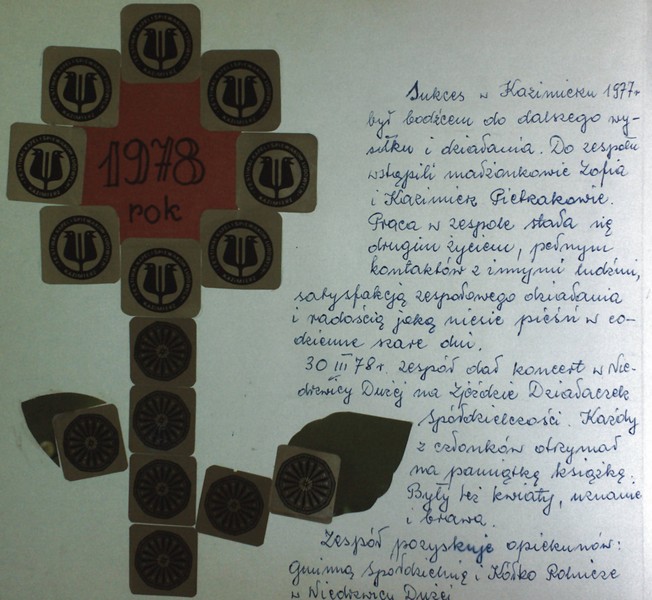 1978
rok
Sukces w Kazimierzu 1977r
był bodźcem do dalszego wy-
siłku i działania. Do zespołu
wstąpili małżonkowie Zofia
i Kazimierz Pietrakowie.
Praca w zespole stała się
drugim życiem, pełnym
kontaktów z innymi ludźmi,
satysfakcją zespołowego działania
i radością jaką niesie pieśń w co-
dzienne szare dni.
30 III 78 r. zespół dał koncert w Nie-
drzwicy Dużej na Zjeździe Działaczek
Spółdzielczości. Każdy
z członków otrzymał
na pamiątkę książkę.
Były też kwiaty, uznanie
i brawa.
Zespół pozyskuje opiekunów:
Gminną Spółdzielnię i Kółko Rolnicze
w Niedrzwicy Dużej